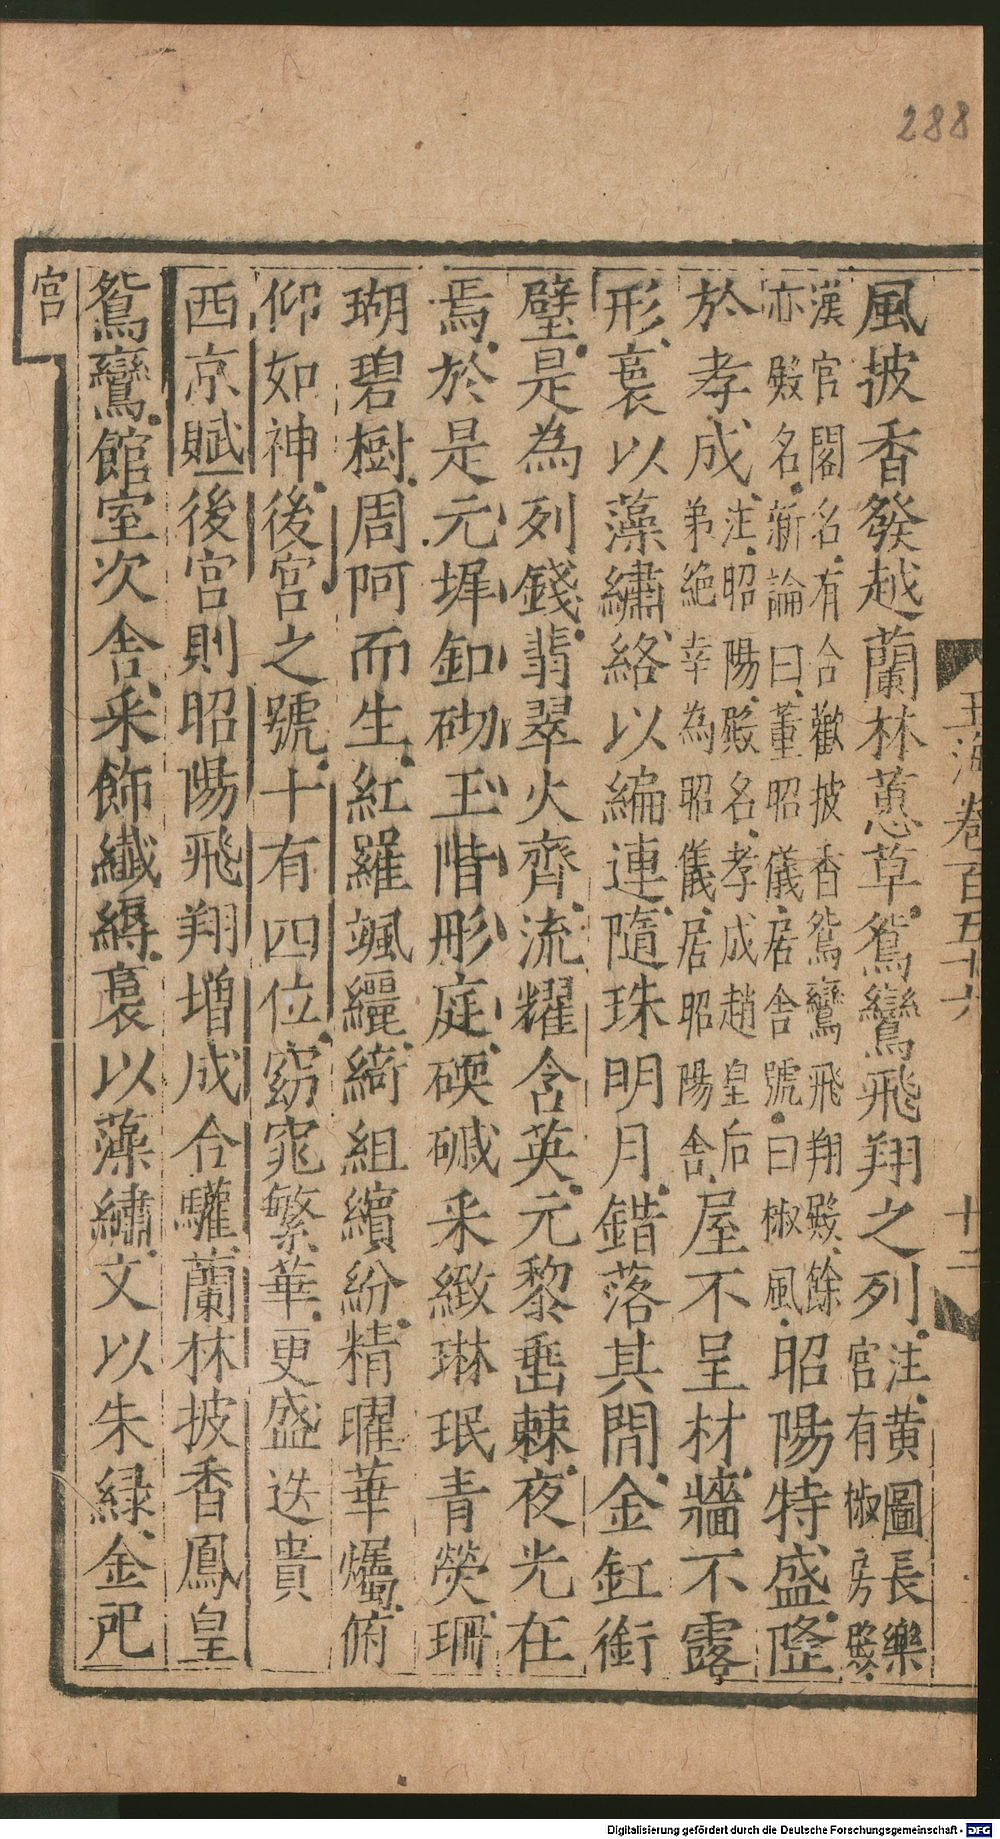 288
玉海卷百五十六
十二
風披香發越蘭林蕙草鴛鸞飛翔之列注黃圖長樂
宮有椒房殿
漢宮閣名有合歡披香鴛鸞飛翔殿餘
亦殿名新論曰董昭儀居舍號曰椒風
昭陽特盛隆
於孝成
注昭陽殿名孝成趙皇后
弟絕幸為昭儀居昭陽舍
屋不呈材牆不露
形裛以藻繡絡以編連隨珠明月錯落其閒金釭銜
璧是為列錢翡翠火齊流耀含英元黎垂棘夜光在
焉於是元墀釦砌玉階彤庭碝磩采緻琳珉青熒珊
瑚碧樹周阿而生紅羅颯纚綺組繽紛精曜華爥俯
仰如神後宮之號十有四位窈窕繁華更盛迭貴
西京賦後宮則昭陽飛翔增成合驩蘭林披香鳳皇
鴛鸞館室次舍采飾纖縟裛以藻繡文以朱綠金戺
宮
Digitalisierung gefördert durch die Deutsche Forschungsgemeinschaft - DFG